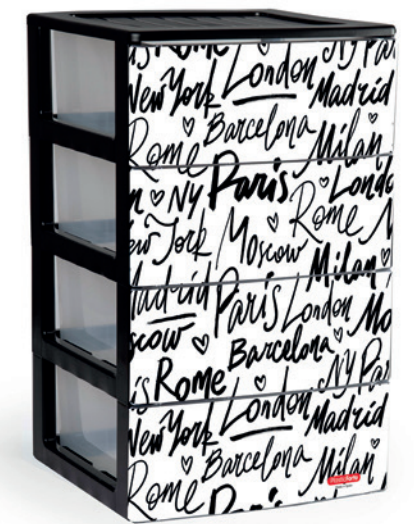 Rome NY Pa
New York London Madrid
Rome Barcelona Milan
NY Paris Londo
ew York Moscow Rome
Milan
Madrid Paris London Mo
scow Barcelona
is Rome NY Pa
New York London Madrid
Rome Barcelona Milan